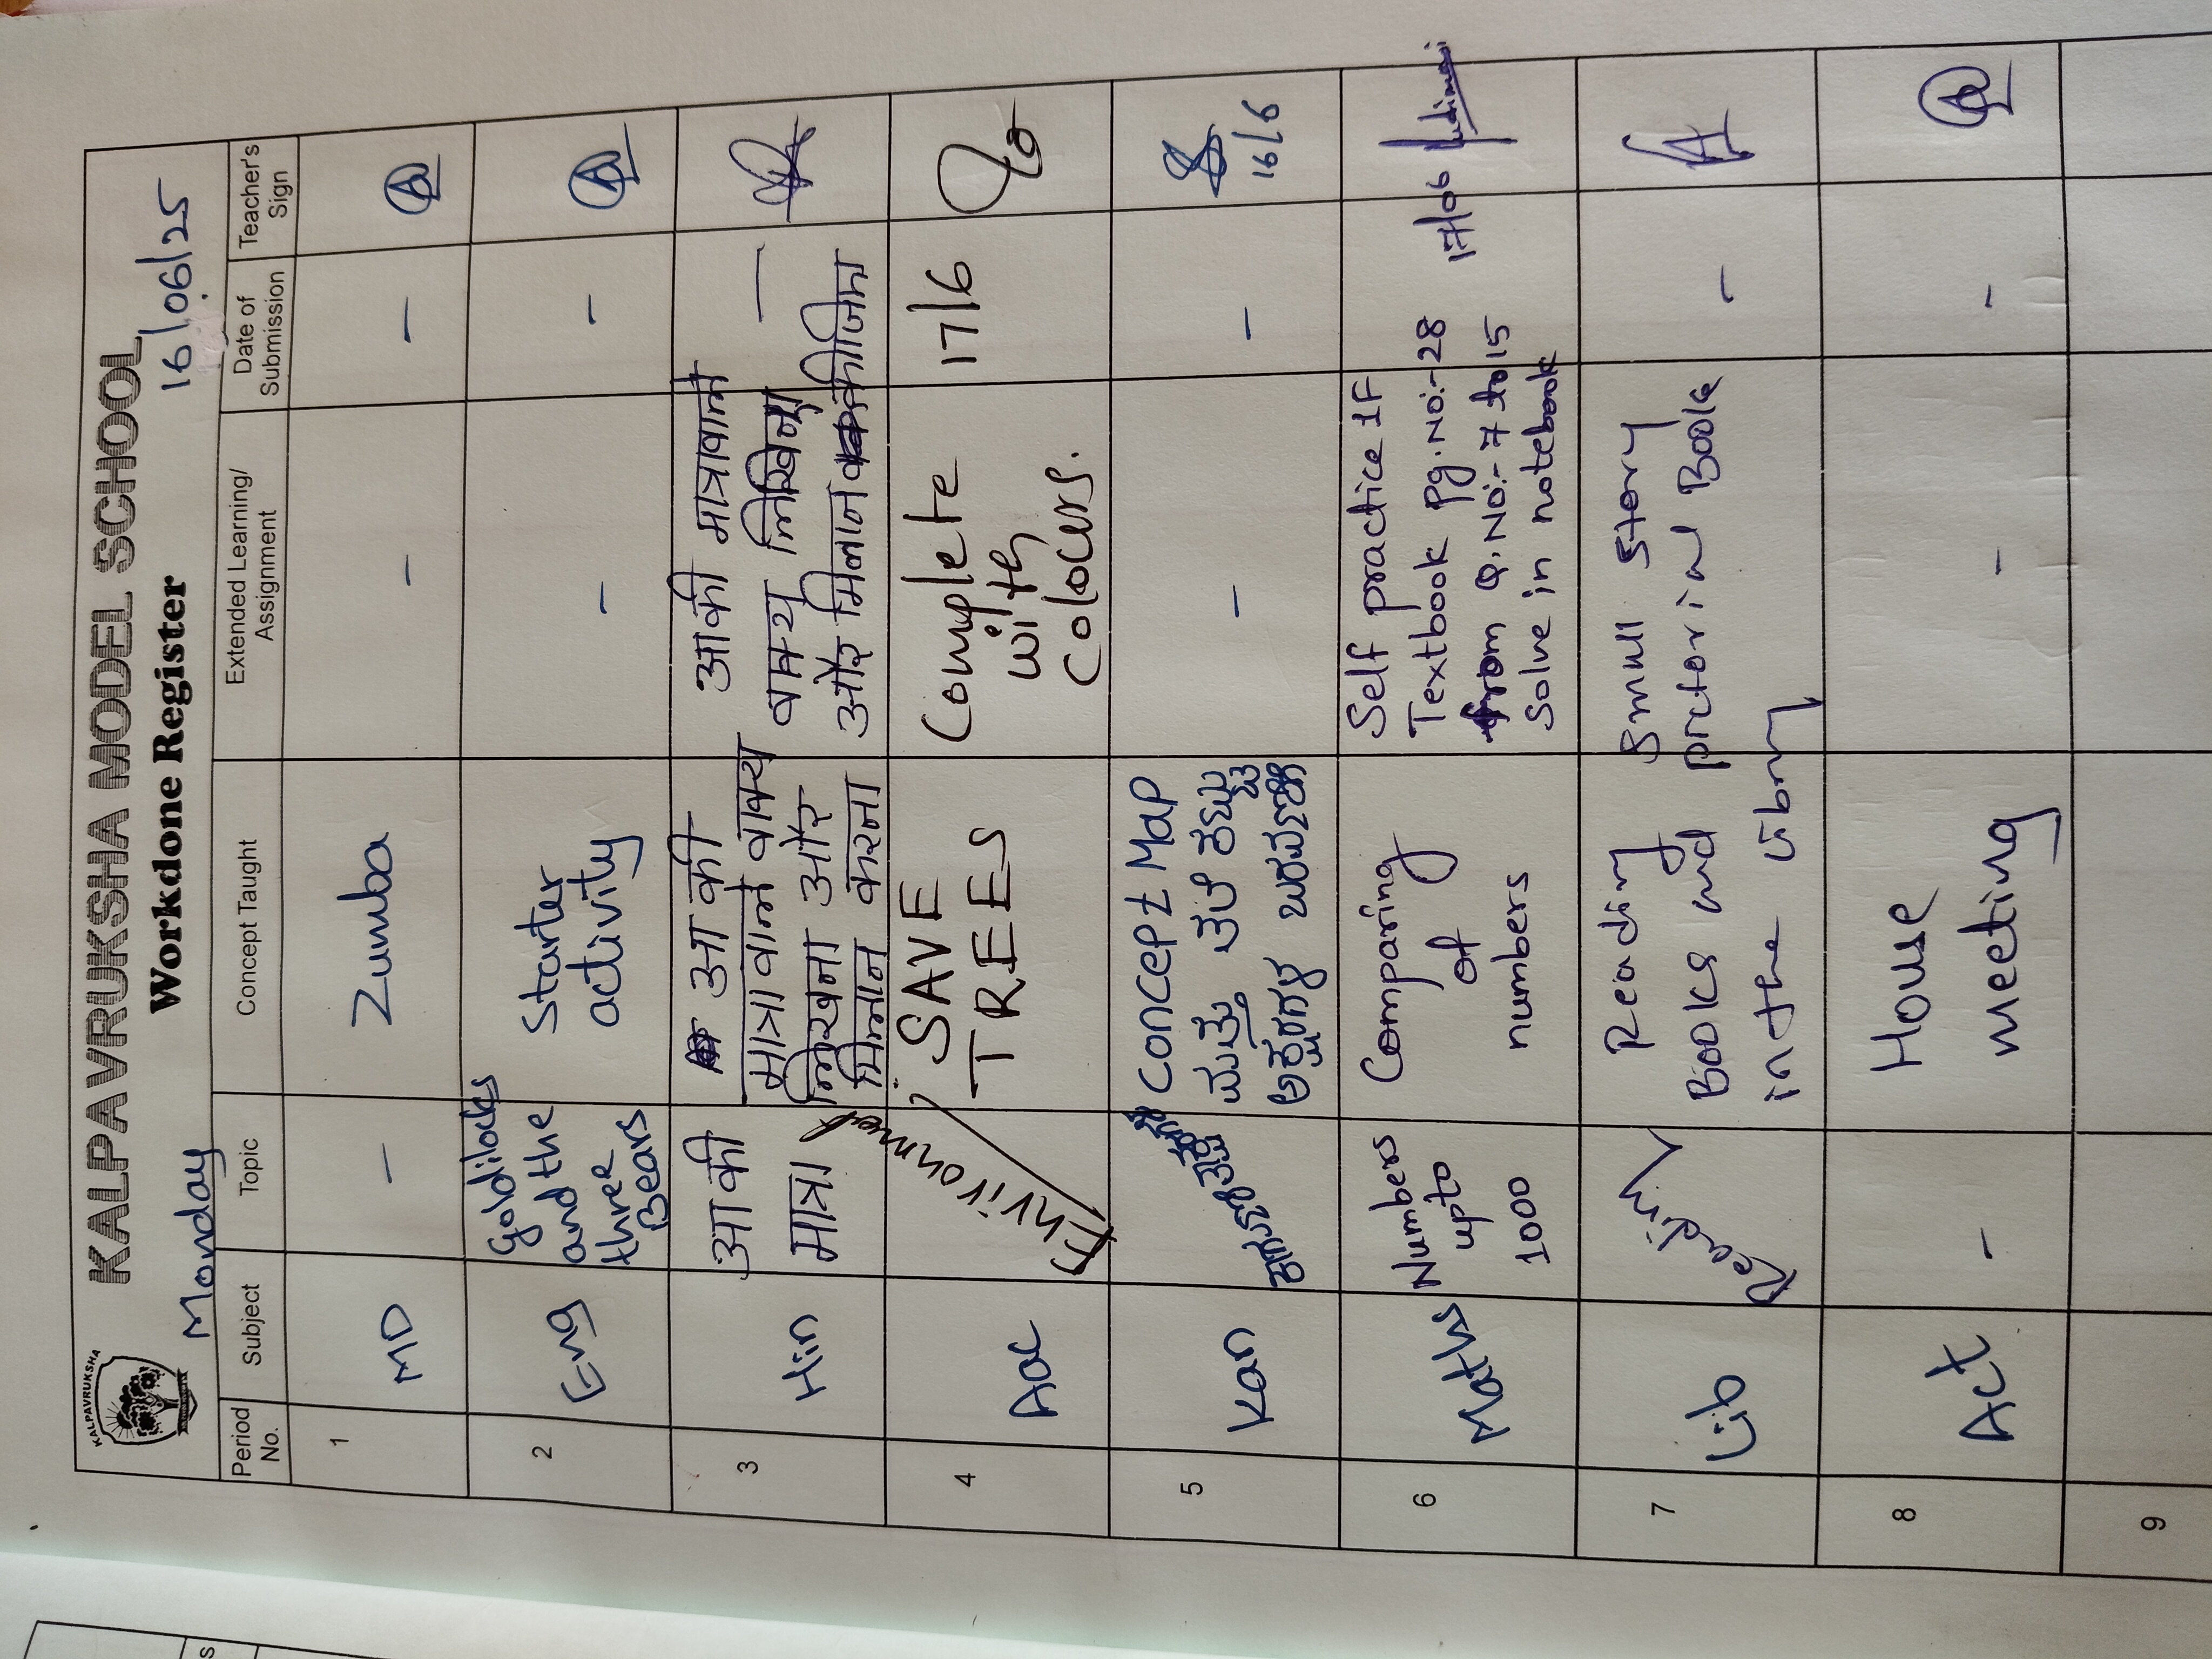 KALPAVRUKSHA
KALPAVRUKSHA MODEL SCHOOL
Workdone Register
Monday
16/06/25
Period No.
Subject
Topic
Concept Taught
Extended Learning/ Assignment
Date of Submission
Teacher's Sign
1
MD
-
Zumba
-
-
2
Eng
Goldilocks
and the
three
Bears
Starter
activity
-
-
3
Hin
आ की
मात्रा
आ की
मात्रा वाले वाक्य
लिखना और
मिलान करना
आ की मात्रा वाले
वाक्य लिखिए
और मिलान कीजिए
—
4
Aac
Environment
SAVE
TREES
Complete
with
colours.
17/6
5
Kan
Concept Map
ಮತ್ತು
-
-
16/6
6
Maths
Numbers
upto
1000
Comparing
of
numbers
Self practice 1F
Textbook Pg.No:-28
from Q.No:-7 to 15
solve in notebook
17/06
7
Lib
Reading
Reading
Books and
in the library
Small Story
pictorial Book
-
8
Act
-
House
meeting
-
-
9